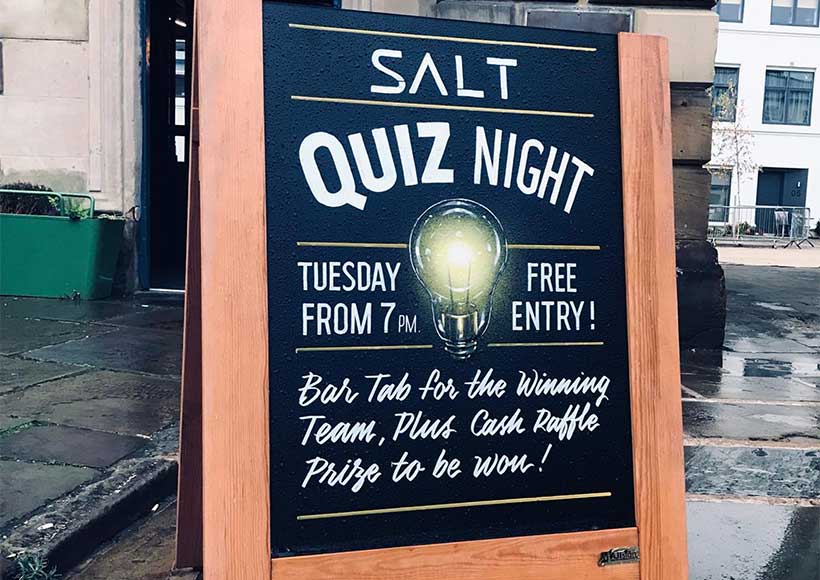 SALT
QUIZ NIGHT
TUESDAY
FROM 7 PM.
FREE
ENTRY!
Bar Tab for the Winning
Team, Plus Cash Raffle
Prize to be won!